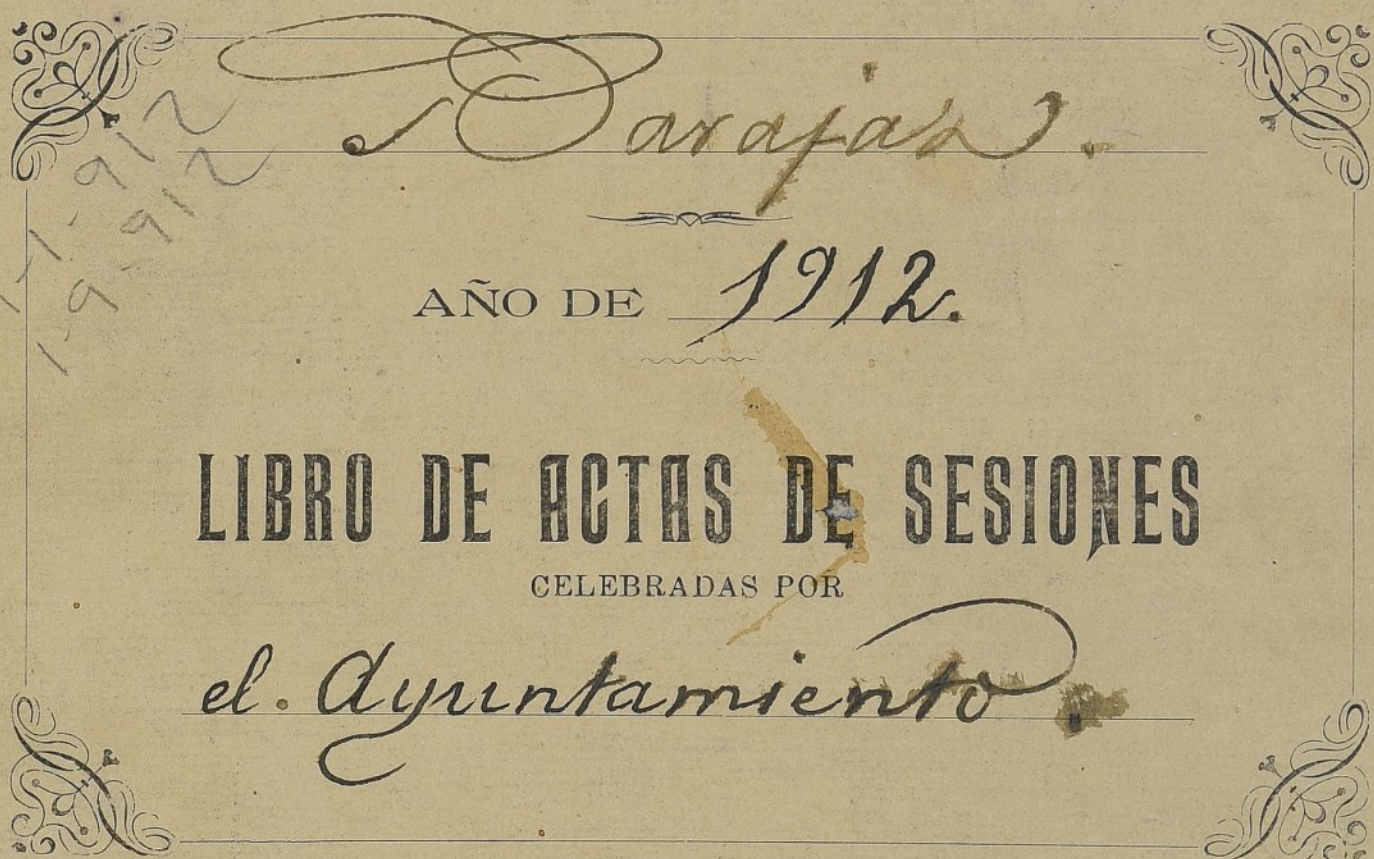 Barajas.
AÑO DE 1912.
LIBRO DE ACTAS DE SESIONES
CELEBRADAS POR
el Ayuntamiento.